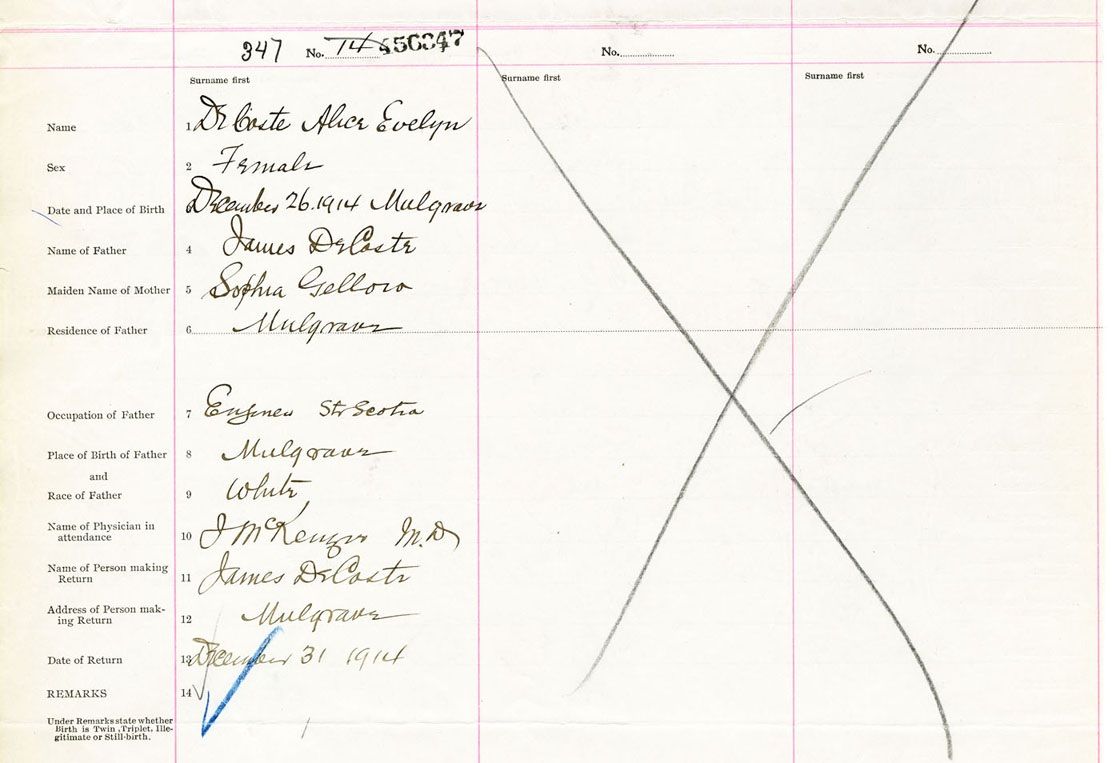 347 No. 14 456347 No. No.
Surname first Surname first Surname first
Name 1 DeCoste Alice Evelyn
Sex 2 Female
Date and Place of Birth December 26.1914 Mulgrave
Name of Father 4 James DeCoste
Maiden Name of Mother 5 Sophia
Residence of Father 6 Mulgrave
Occupation of Father 7 Engineer Str Scotia
Place of Birth of Father 8 Mulgrave
and
Race of Father 9 White
Name of Physician in
attendance 10 J McKenzie M.D
Name of Person making
Return 11 James DeCoste
Address of Person mak-
ing Return 12 Mulgrave
Date of Return 13 December 31 1914
REMARKS 14
Under Remarks state whether
Birth is Twin, Triplet, Ille-
gitimate or Still-birth.